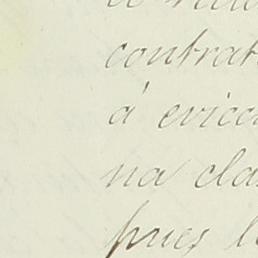 contrat
á evicc
na cla
pues l